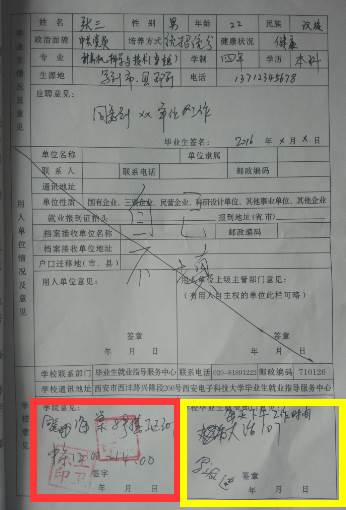 姓名 张三 性别 男 年龄 22 民族 汉族
政治面貌 中共党员 培养方式 统招统分 健康状况 健康
专业 计算机科学与技术 学制 四年 学历 本科
生源地 电话 13712345678
毕业生情况及意见
应聘意见：
同意到 xx 单位工作
毕业生签名： 2016 年 x 月 x 日
用人单位情况及意见
单位名称 单位隶属
联系人 联系电话 邮政编码
通讯地址
单位性质 国有企业、三资企业、民营企业、科研设计单位、其他事业单位、其他企业
就业报到证抬头 报到地址(省.市)
档案接收单位名称 邮政编码
档案接收单位地址
户口迁移地(市、县)
自己不填
用人单位意见： 用人单位上级主管部门意见：
(有用人自主权的单位此栏可略)
签章 签章
年 月 日 年 月 日
学校意见
学校联系部门 毕业生就业指导服务中心 联系电话 029-81891222 邮政编码 710126
学校通讯地址 西安市西沣路兴隆段266号西安电子科技大学毕业生就业指导服务中心
学院意见：
签字
年 月 日
校毕业生就业指导服务中心意见：
工作时间
签章
年 月 日